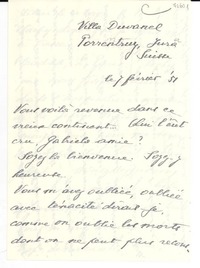 Villa Duvanel
Porrentruy, Jura
Suisse
le 7 février '51
Vous voilà revenue dans ce
vieux continent. Qui l'eût
cru, Gabriela amie?
Soyez la bienvenue. Soyez-y
heureuse.
Vous m'avez oubliée, oubliée
avec ténacité dirais-je,
comme on oublie les morts
dont on ne peut plus